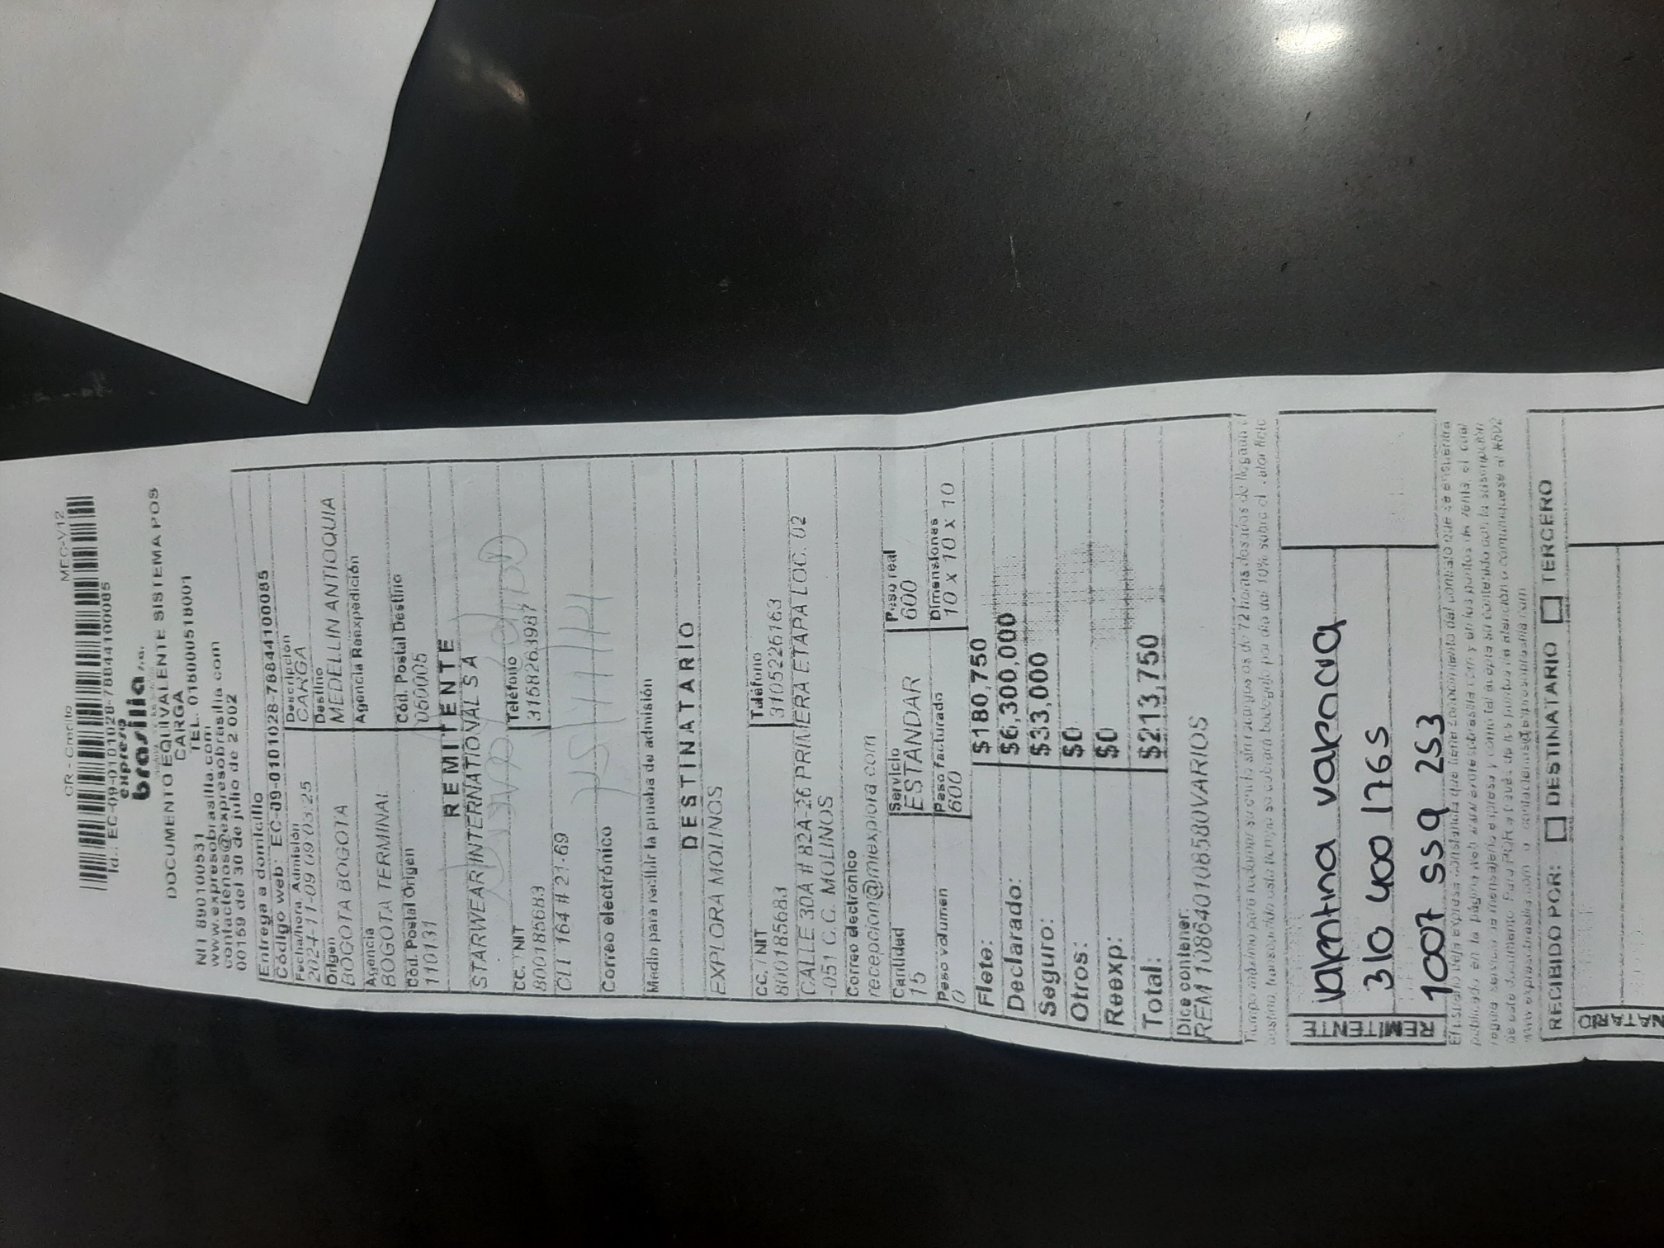 CR - Crédito MEC-V12
Id.: EC-09-0101028-78844100085
expreso
brasilia s.a.
DOCUMENTO EQUIVALENTE SISTEMA POS
CARGA
NIT 890100531 TEL. 018000518001
www.expresobrasilia.com
contactenos@expresobrasilia.com
00159 del 30 de julio de 2 002
Entrega a domicilio
Código web: EC-09-0101028-7884410085
Fecha/hora. Admisión Descripción
2024-11-09 09:03:25 CARGA
Origen Destino
BOGOTA BOGOTA MEDELLIN ANTIOQUIA
Agencia Agencia Reexpedición
BOGOTA TERMINAL
Cód. Postal Origen Cód. Postal Destino
110131 050005
REMITENTE
STARWEAR INTERNATIONAL S A
CC. / NIT Teléfono
800185683 3158263987
CLL 164 # 21-69
Correo electrónico
Medio para recibir la prueba de admisión
DESTINATARIO
EXPLORA MOLINOS
CC. / NIT Teléfono
800185683 3105226163
CALLE 30A # 82A-26 PRIMERA ETAPA LOC. 02
-051 C.C. MOLINOS
Correo electrónico
recepcion@miexplora.com
Cantidad Servicio Peso real
15 ESTANDAR 600
Peso volumen Peso facturado Dimensiones
0 600 10 x 10 x 10
Flete: $180,750
Declarado: $6,300,000
Seguro: $33,000
Otros: $0
Reexp: $0
Total: $213,750
Dice contener:
REM 108640106580VARIOS
REMITENTE
310 400 1765
REMITENTE 1007 559 253
RECIBIDO POR: DESTINATARIO TERCERO